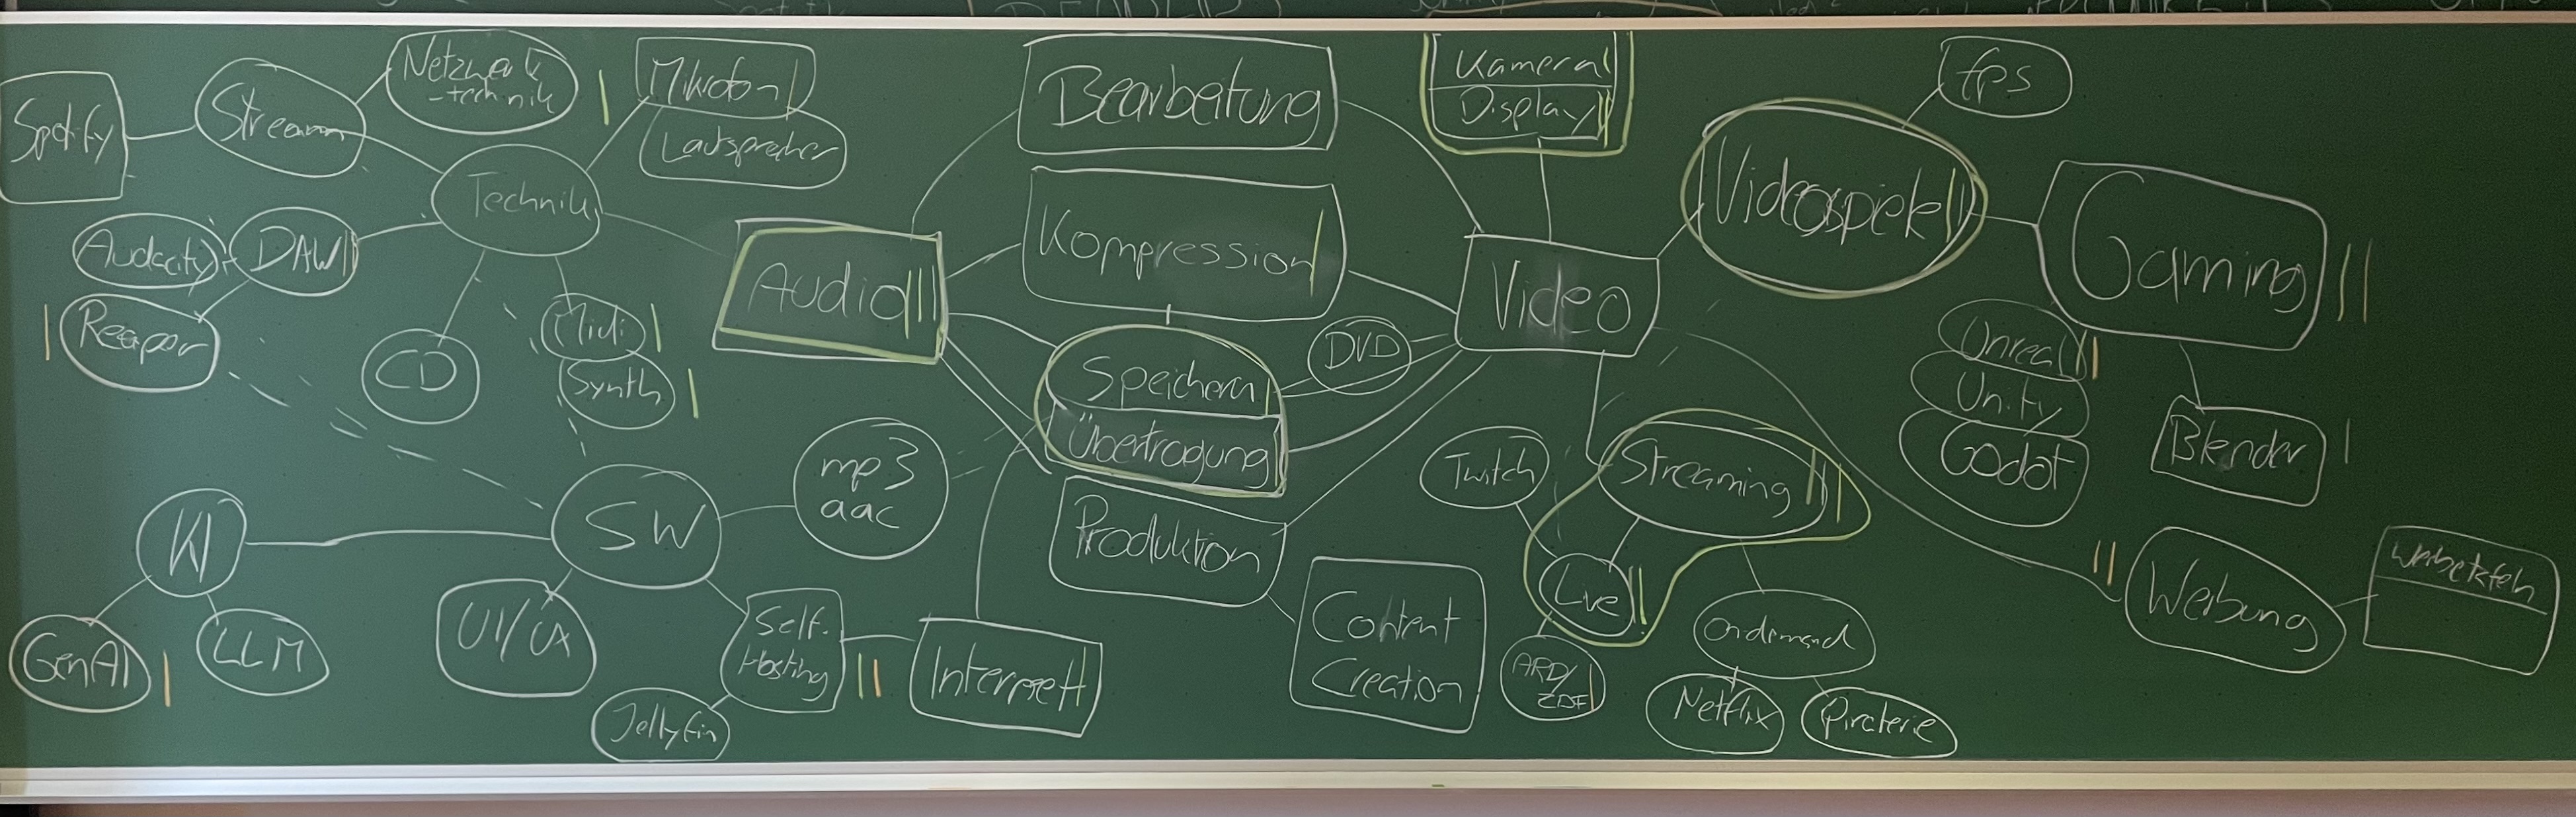 Spotify
Stream
Netzwerk
-technik
Mikrofon
Lautsprecher
Technik
Audacity
DAW
Reaper
CD
Midi
Synth
Audio
Bearbeitung
Kompression
Speichern
Übertragung
Produktion
Content
Creation
DVD
Kamera
Display
Video
Videospiele
fps
Gaming
Unreal
Unity
Godot
Blender
Twitch
Streaming
Live
ARD/
ZDF
Ondemand
Netflix
Piraterie
Werbung
Werbetafeln
mp3
aac
SW
KI
GenAI
LLM
UI/UX
Self.
Hosting
Jellyfin